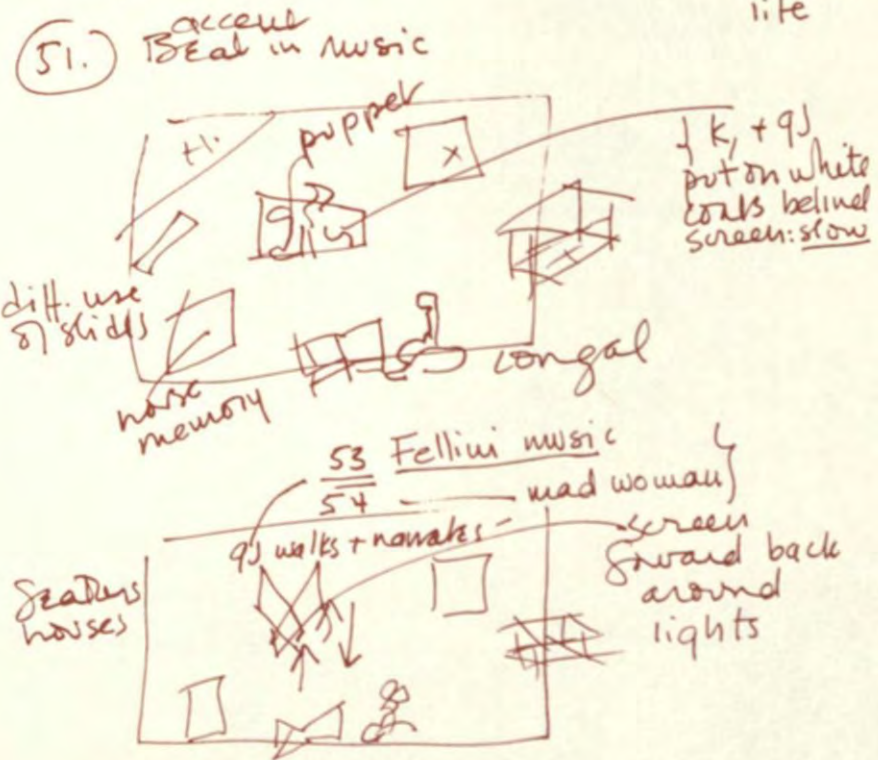 life
accent
51. Beat in music
puppet
+
x
{ K, + 9J
put on white
coats behind
screen: slow
diff. use
of slides
x
noise
memory
53 Fellini music
54 — mad woman }
9J walks + narrates -
screen
forward back
around
lights
houses